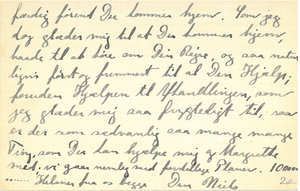 færdig førend Du kommer hjem. Som jeg
dog glæder mig til at Du kommer hjem,
baade til at høre om Din Rejse, og saa natur-
ligvis først og fremmest til al Den Hjælp,
foruden Hjælpen til Udstillingen, som
jeg glæder mig saa frygteligt til, saa
er der som sædvanlig saa mange mange
Ting, som Du kan hjælpe mig og Margrethe
med. vi gaar nemlig med forskellige Planer. 10000
....... Hilsner fra os begge Din Niels